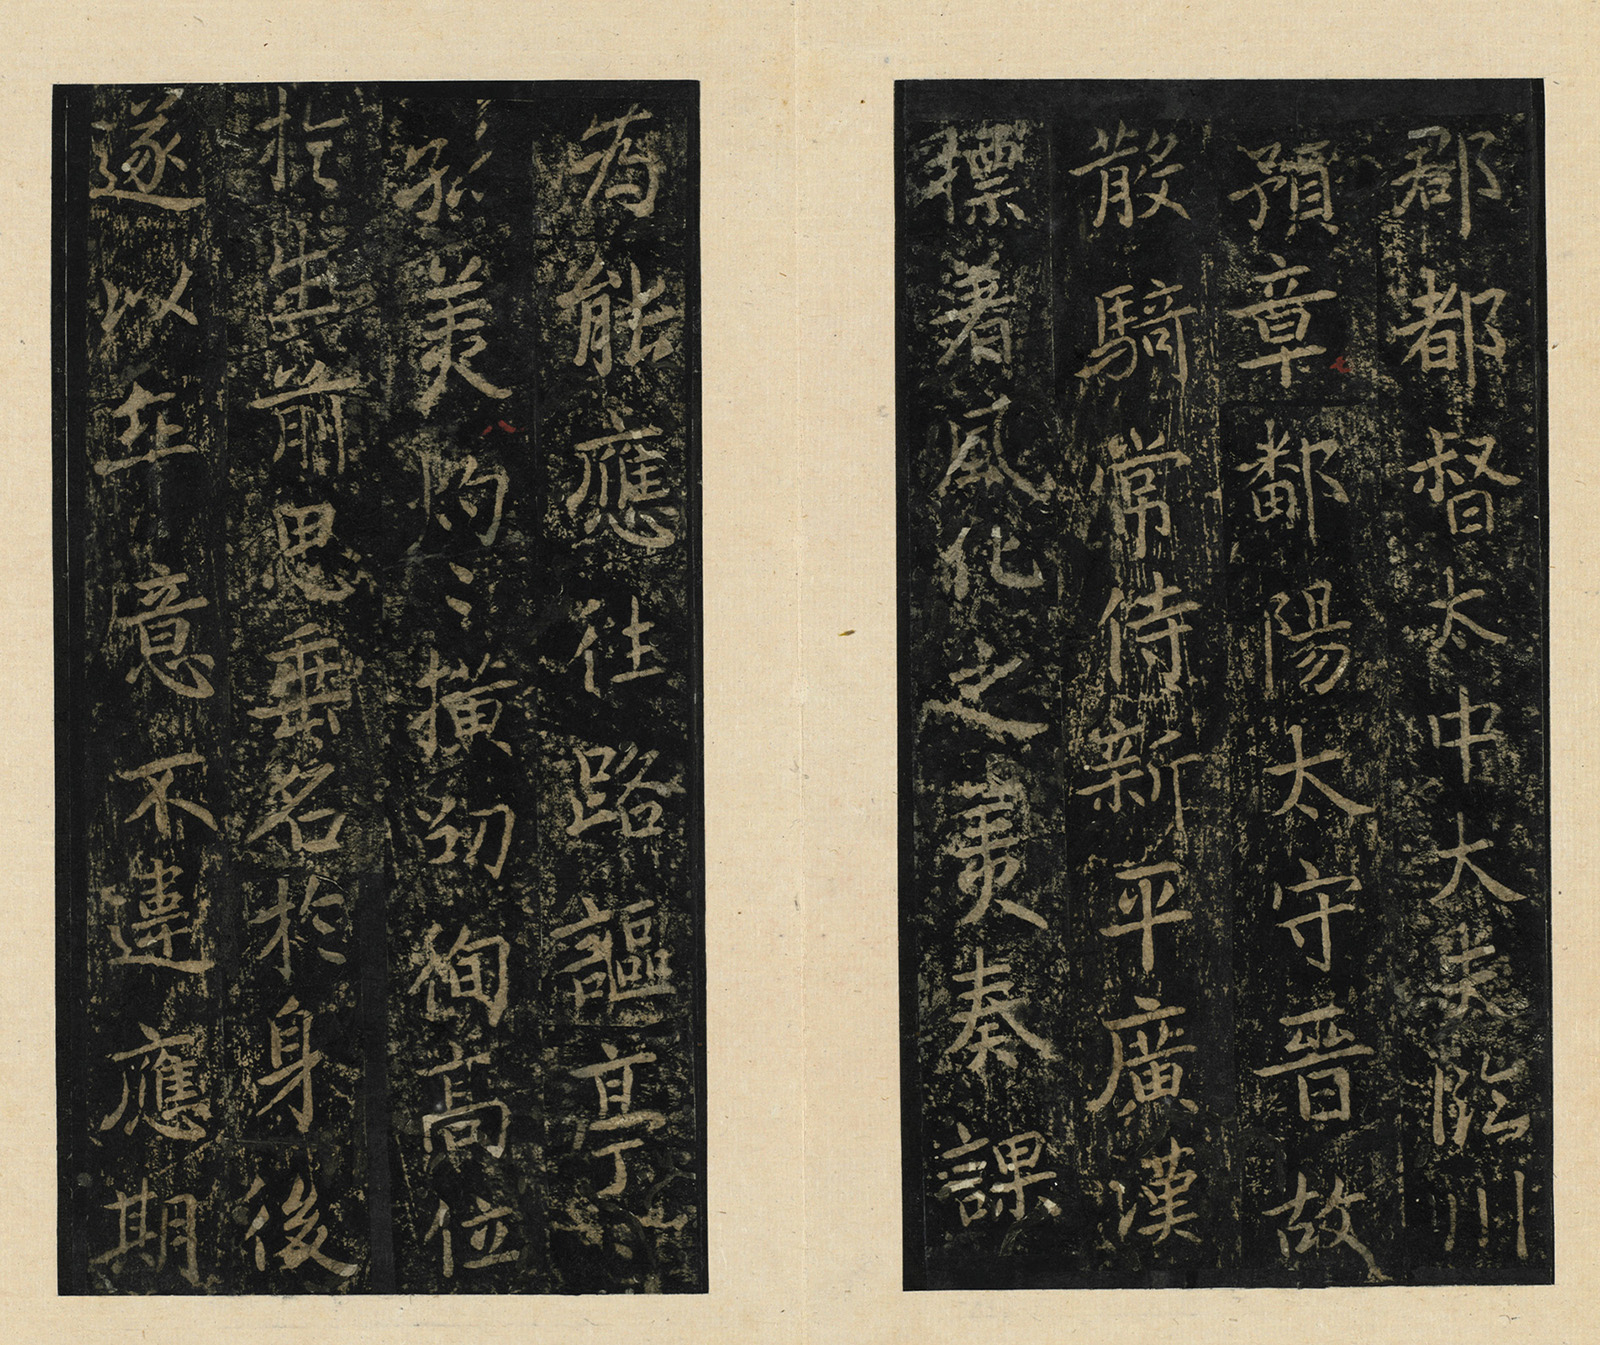 郡都督太中大夫臨川
豫章鄱陽太守晉故
散騎常侍新平廣漢
標著風化之美奏課
為能應往路謳亭〻
孤美灼〻橫劭徇高位
於生前思垂名於身後
遂以在意不違應期